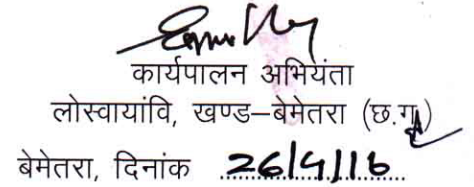 कार्यपालन अभियंता
लोस्वायांवि, खण्ड–बेमेतरा (छ.ग.)
बेमेतरा, दिनांक 26/4/16